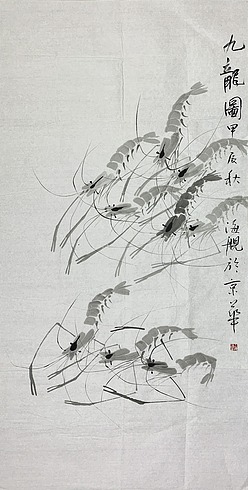 九龍圖甲辰秋海舰於京華